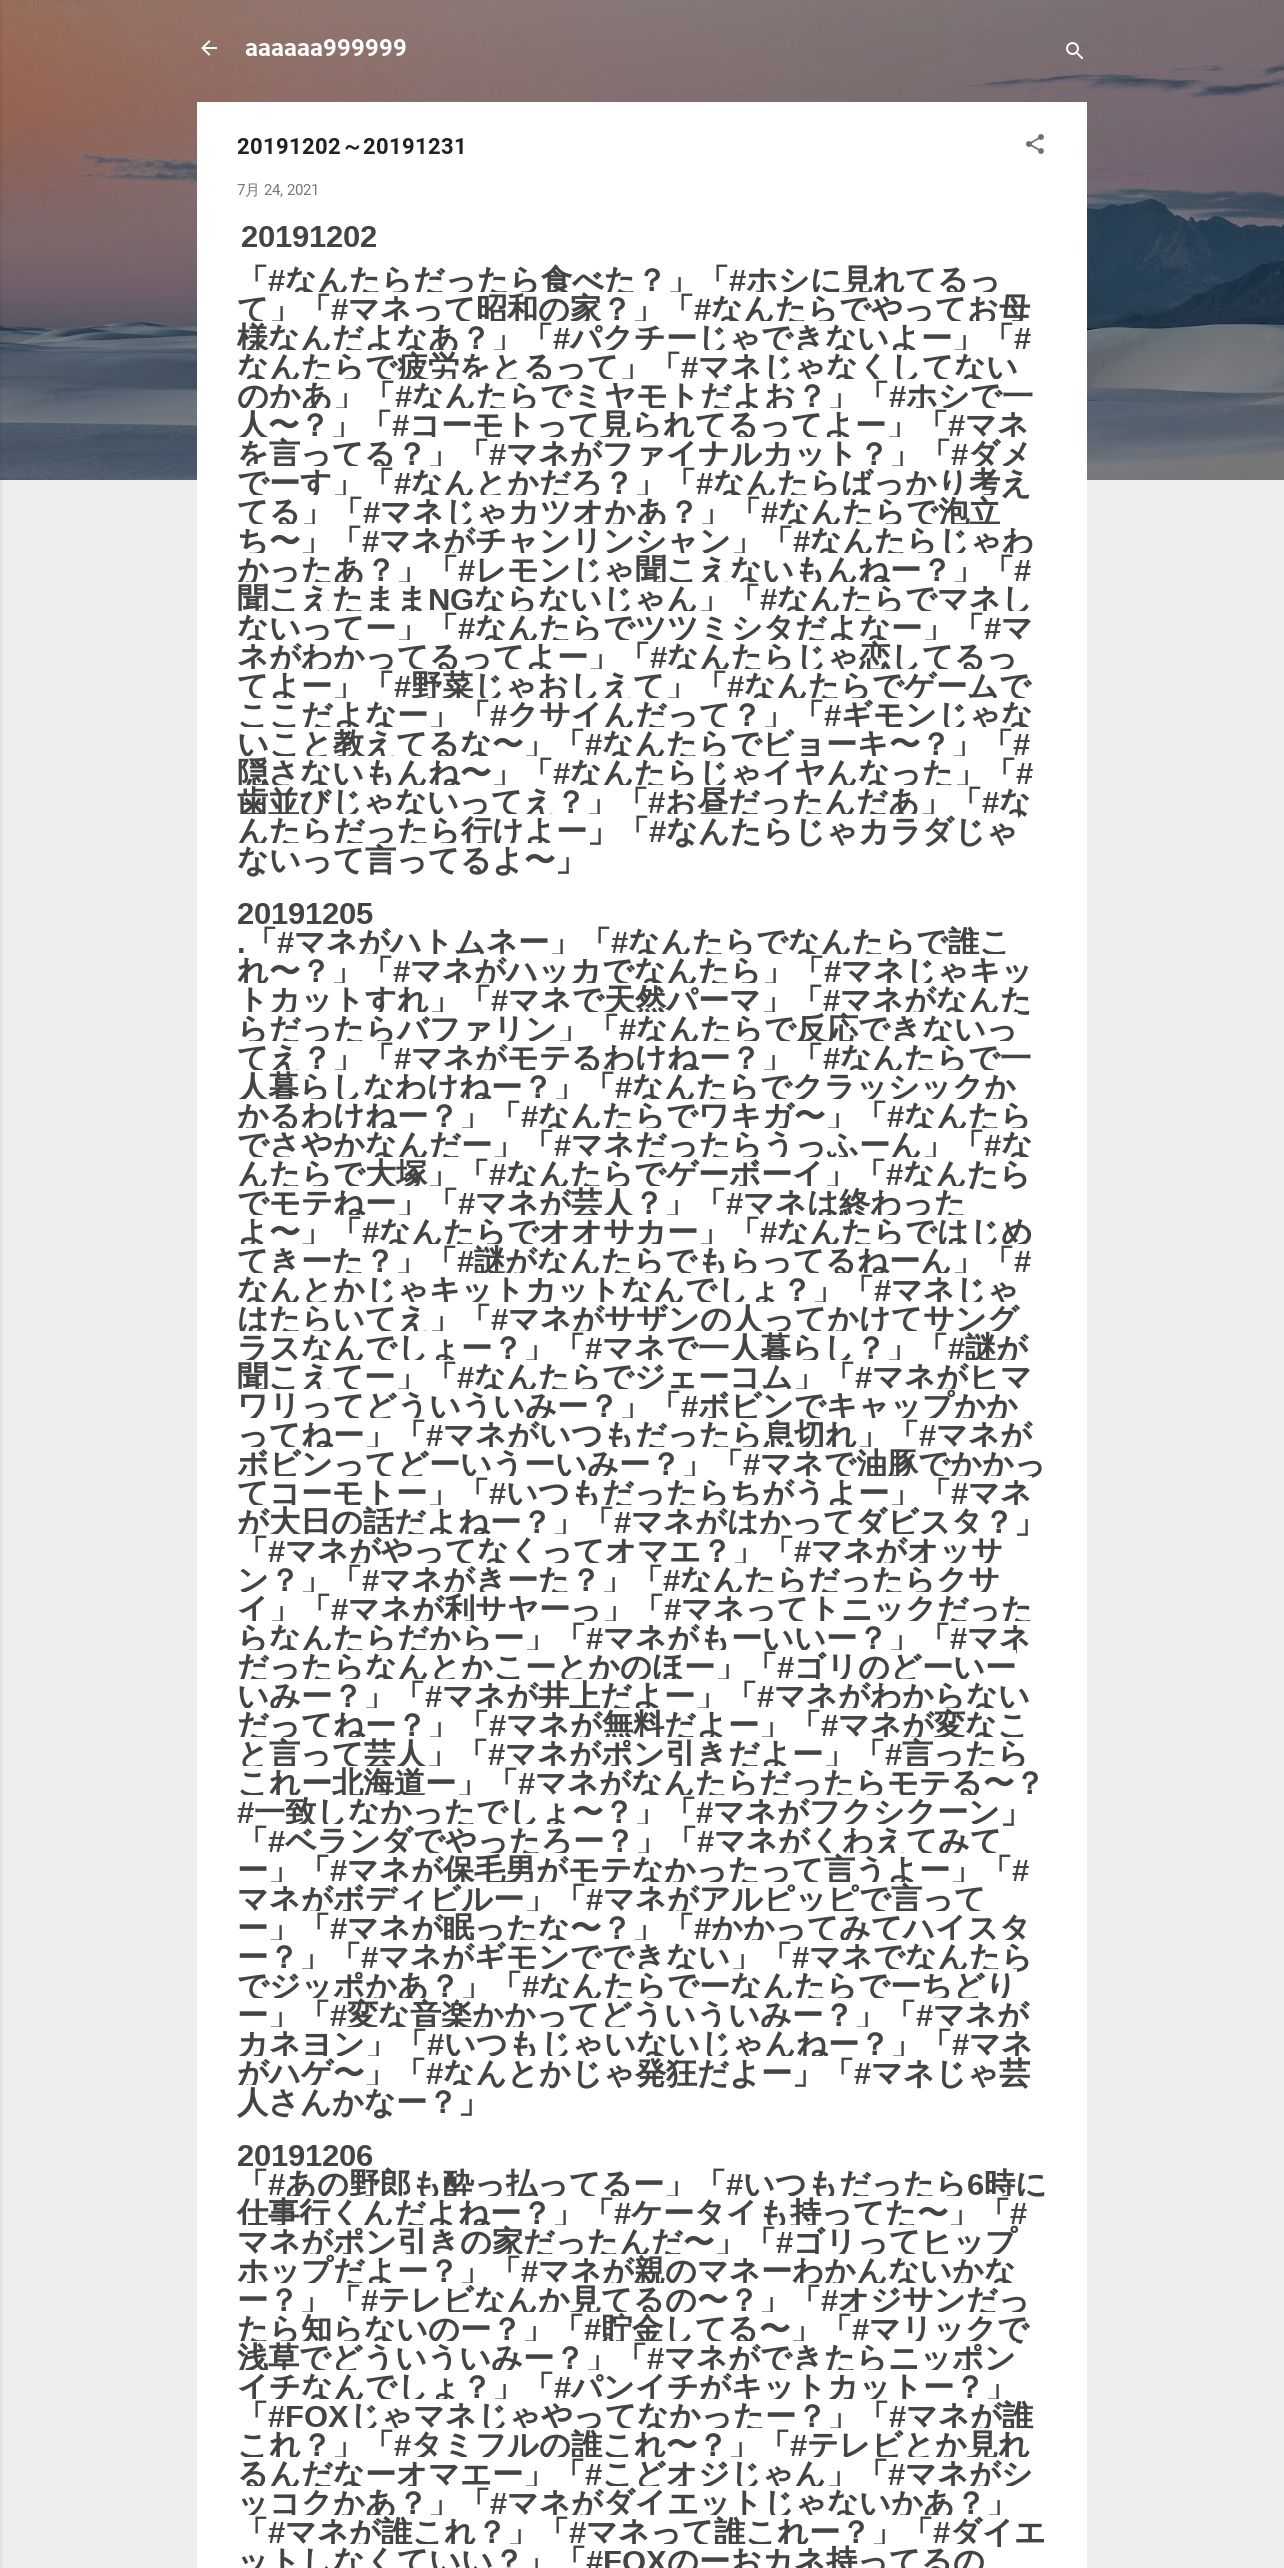 aaaaaa999999
20191202～20191231
7月 24, 2021
20191202
「#なんたらだったら食べた？」「#ホシに見れてるっ
て」「#マネって昭和の家？」「#なんたらでやってお母
様なんだよなあ？」「#パクチーじゃできないよー」「#
なんたらで疲労をとるって」「#マネじゃなくしてない
のかあ」「#なんたらでミヤモトだよお？」「#ホシで一
人〜？」「#コーモトって見られてるってよー」「#マネ
を言ってる？」「#マネがファイナルカット？」「#ダメ
でーす」「#なんとかだろ？」「#なんたらばっかり考え
てる」「#マネじゃカツオかあ？」「#なんたらで泡立
ち〜」「#マネがチャンリンシャン」「#なんたらじゃわ
かったあ？」「#レモンじゃ聞こえないもんねー？」「#
聞こえたままNGならないじゃん」「#なんたらでマネし
ないってー」「#なんたらでツツミシタだよなー」「#マ
ネがわかってるってよー」「#なんたらじゃ恋してるっ
てよー」「#野菜じゃおしえて」「#なんたらでゲームで
ここだよなー」「#クサイんだって？」「#ギモンじゃな
いこと教えてるな〜」「#なんたらでビョーキ〜？」「#
隠さないもんね〜」「#なんたらじゃイヤんなった」「#
歯並びじゃないってえ？」「#お昼だったんだあ」「#な
んたらだったら行けよー」「#なんたらじゃカラダじゃ
ないって言ってるよ〜」
20191205
.「#マネがハトムネー」「#なんたらでなんたらで誰こ
れ〜？」「#マネがハッカでなんたら」「#マネじゃキッ
トカットすれ」「#マネで天然パーマ」「#マネがなんた
らだったらバファリン」「#なんたらで反応できないっ
てえ？」「#マネがモテるわけねー？」「#なんたらで一
人暮らしなわけねー？」「#なんたらでクラッシックか
かるわけねー？」「#なんたらでワキガ〜」「#なんたら
でさやかなんだー」「#マネだったらうっふーん」「#な
んたらで大塚」「#なんたらでゲーボーイ」「#なんたら
でモテねー」「#マネが芸人？」「#マネは終わった
よ〜」「#なんたらでオオサカー」「#なんたらではじめ
てきーた？」「#謎がなんたらでもらってるねーん」「#
なんとかじゃキットカットなんでしょ？」「#マネじゃ
はたらいてえ」「#マネがサザンの人ってかけてサング
ラスなんでしょー？」「#マネで一人暮らし？」「#謎が
聞こえてー」「#なんたらでジェーコム」「#マネがヒマ
ワリってどういういみー？」「#ボビンでキャップかか
ってねー」「#マネがいつもだったら息切れ」「#マネが
ボビンってどーいうーいみー？」「#マネで油豚でかかっ
てコーモトー」「#いつもだったらちがうよー」「#マネ
が大日の話だよねー？」「#マネがはかってダビスタ？」
「#マネがやってなくってオマエ？」「#マネがオッサ
ン？」「#マネがきーた？」「#なんたらだったらクサ
イ」「#マネが利サヤーっ」「#マネってトニックだった
らなんたらだからー」「#マネがもーいいー？」「#マネ
だったらなんとかこーとかのほー」「#ゴリのどーいー
いみー？」「#マネが井上だよー」「#マネがわからない
だってねー？」「#マネが無料だよー」「#マネが変なこ
と言って芸人」「#マネがポン引きだよー」「#言ったら
これー北海道ー」「#マネがなんたらだったらモテる〜？
#一致しなかったでしょ〜？」「#マネがフクシクーン」
「#ベランダでやったろー？」「#マネがくわえてみて
ー」「#マネが保毛男がモテなかったって言うよー」「#
マネがボディビルー」「#マネがアルピッピで言って
ー」「#マネが眠ったな〜？」「#かかってみてハイスタ
ー？」「#マネがギモンでできない」「#マネでなんたら
でジッポかあ？」「#なんたらでーなんたらでーちどり
ー」「#変な音楽かかってどういういみー？」「#マネが
カネヨン」「#いつもじゃいないじゃんねー？」「#マネ
がハゲ〜」「#なんとかじゃ発狂だよー」「#マネじゃ芸
人さんかなー？」
20191206
「#あの野郎も酔っ払ってるー」「#いつもだったら6時に
仕事行くんだよねー？」「#ケータイも持ってた〜」「#
マネがポン引きの家だったんだ〜」「#ゴリってヒップ
ホップだよー？」「#マネが親のマネーわかんないかな
ー？」「#テレビなんか見てるの〜？」「#オジサンだっ
たら知らないのー？」「#貯金してる〜」「#マリックで
浅草でどういういみー？」「#マネができたらニッポン
イチなんでしょ？」「#パンイチがキットカットー？」
「#FOXじゃマネじゃやってなかったー？」「#マネが誰
これ？」「#タミフルの誰これ〜？」「#テレビとか見れ
るんだなーオマエー」「#こどオジじゃん」「#マネがシ
ッコクかあ？」「#マネがダイエットじゃないかあ？」
「#マネが誰これ？」「#マネって誰これー？」「#ダイエ
ットしなくていい？」「#FOXのーおカネ持ってるの